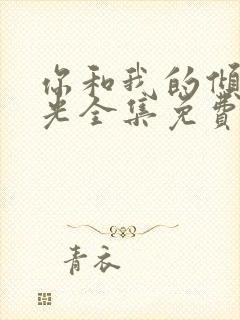 你和我的倾
光全集免费
青衣